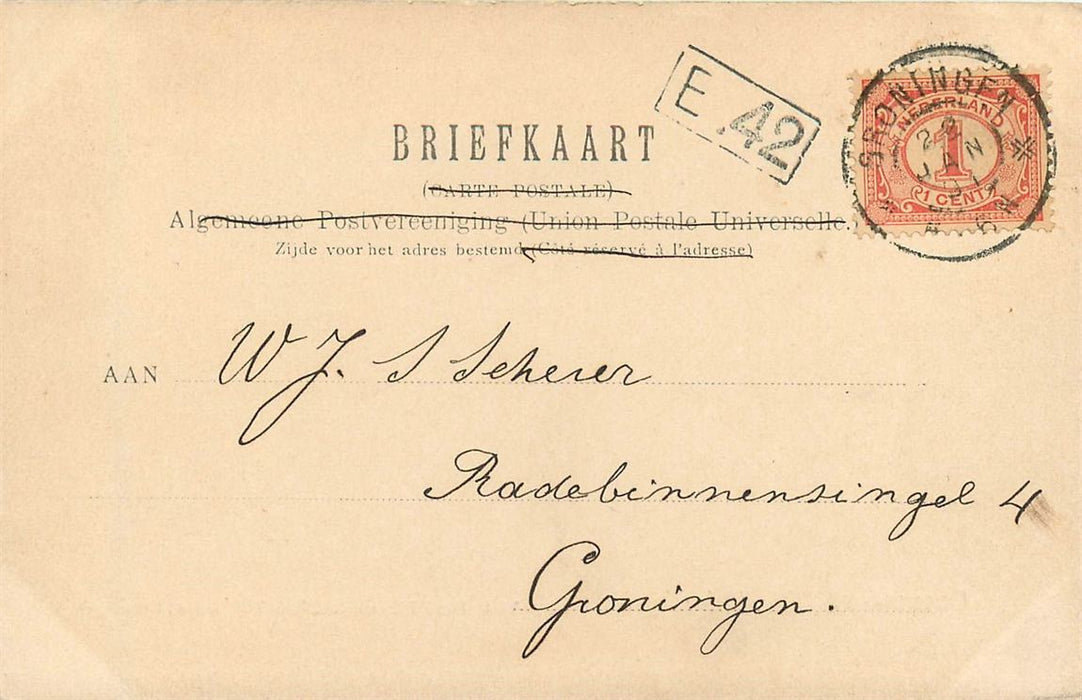 E 42
BRIEFKAART
(CARTE POSTALE)
Algemeene Postvereeniging (Union Postale Universelle.)
Zijde voor het adres bestemd. (Côté réservé à l'adresse)
GRONINGEN
NEDERLAND
JAN
1
1 CENT
AAN W J. S Scherer
Radebinnensingel 4
Groningen.